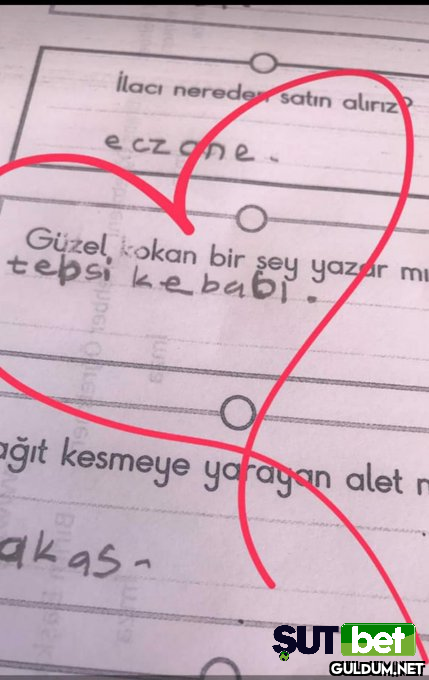 İlacı nereden satın alırız?
eczane.
Güzel kokan bir şey yazar mı
tepsi kebabi.
ağıt kesmeye yarayan alet n
akas-
ŞUTbet
GULDUM.NET